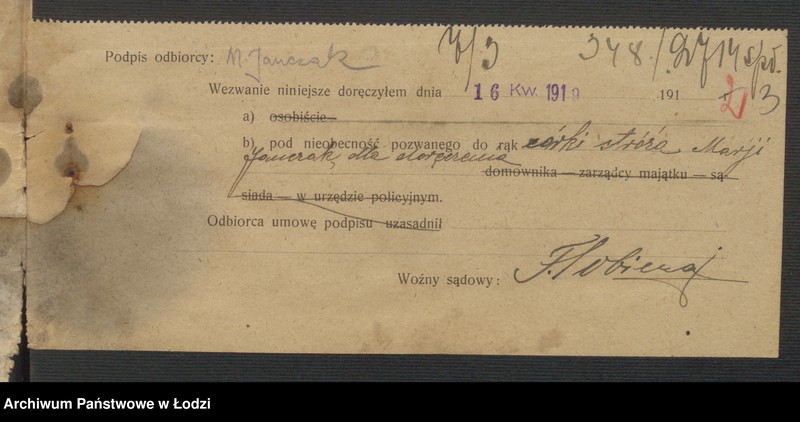 7/3 348/2714 spł.
Podpis odbiorcy: M. Janczak
Wezwanie niniejsze doręczyłem dnia 16 Kw. 1919 191
2 3
a) osobiście
b) pod nieobecność pozwanego do rąk córki stróża Marji
Janczak, dla doręczenia
domownika — zarządcy majątku — są-
siada — w urzędzie policyjnym.
Odbiorca umowę podpisu uzasadnił
Woźny sądowy:
Archiwum Państwowe w Łodzi